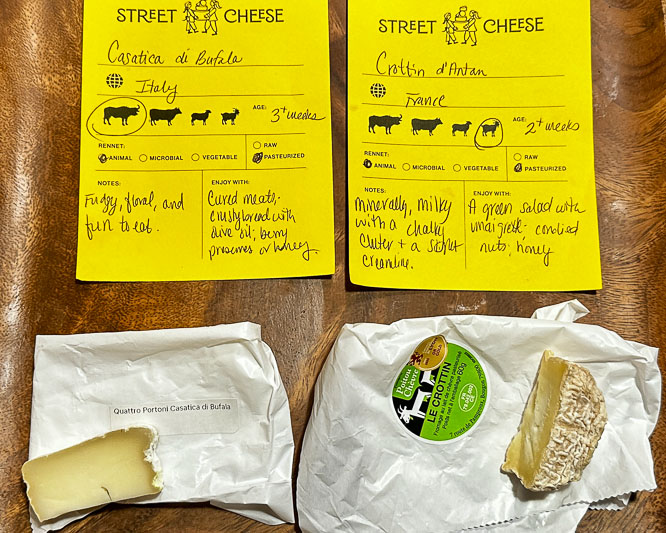 STREET CHEESE
Casatica di Bufala
Italy
AGE: 3+ weeks
RENNET:
ANIMAL MICROBIAL VEGETABLE
RAW
PASTEURIZED
NOTES:
Fudgy, floral, and
fun to eat.
ENJOY WITH:
Cured meats;
crusty bread with
olive oil; berry
preserves or honey.
STREET CHEESE
Crottin d'Antan
France
AGE: 2+ weeks
RENNET:
ANIMAL MICROBIAL VEGETABLE
RAW
PASTEURIZED
NOTES:
minerally, milky
with a chalky
center + a
creamline.
ENJOY WITH:
A green salad with
vinaigrette; candied
nuts; honey
Quattro Portoni Casatica di Bufala
Poitou
Chèvre
LE CROTTIN
Fromage au lait de chèvre pasteurisé
Poids net à l'emballage 60g
FR
CE